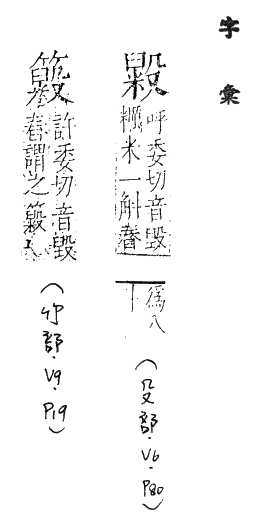 字彙
毇
呼委切音毀
糲米一斛舂
爲八
斗
(殳部.V6.P80)
許委切音毀
舂謂之
(竹部.V9.P19)